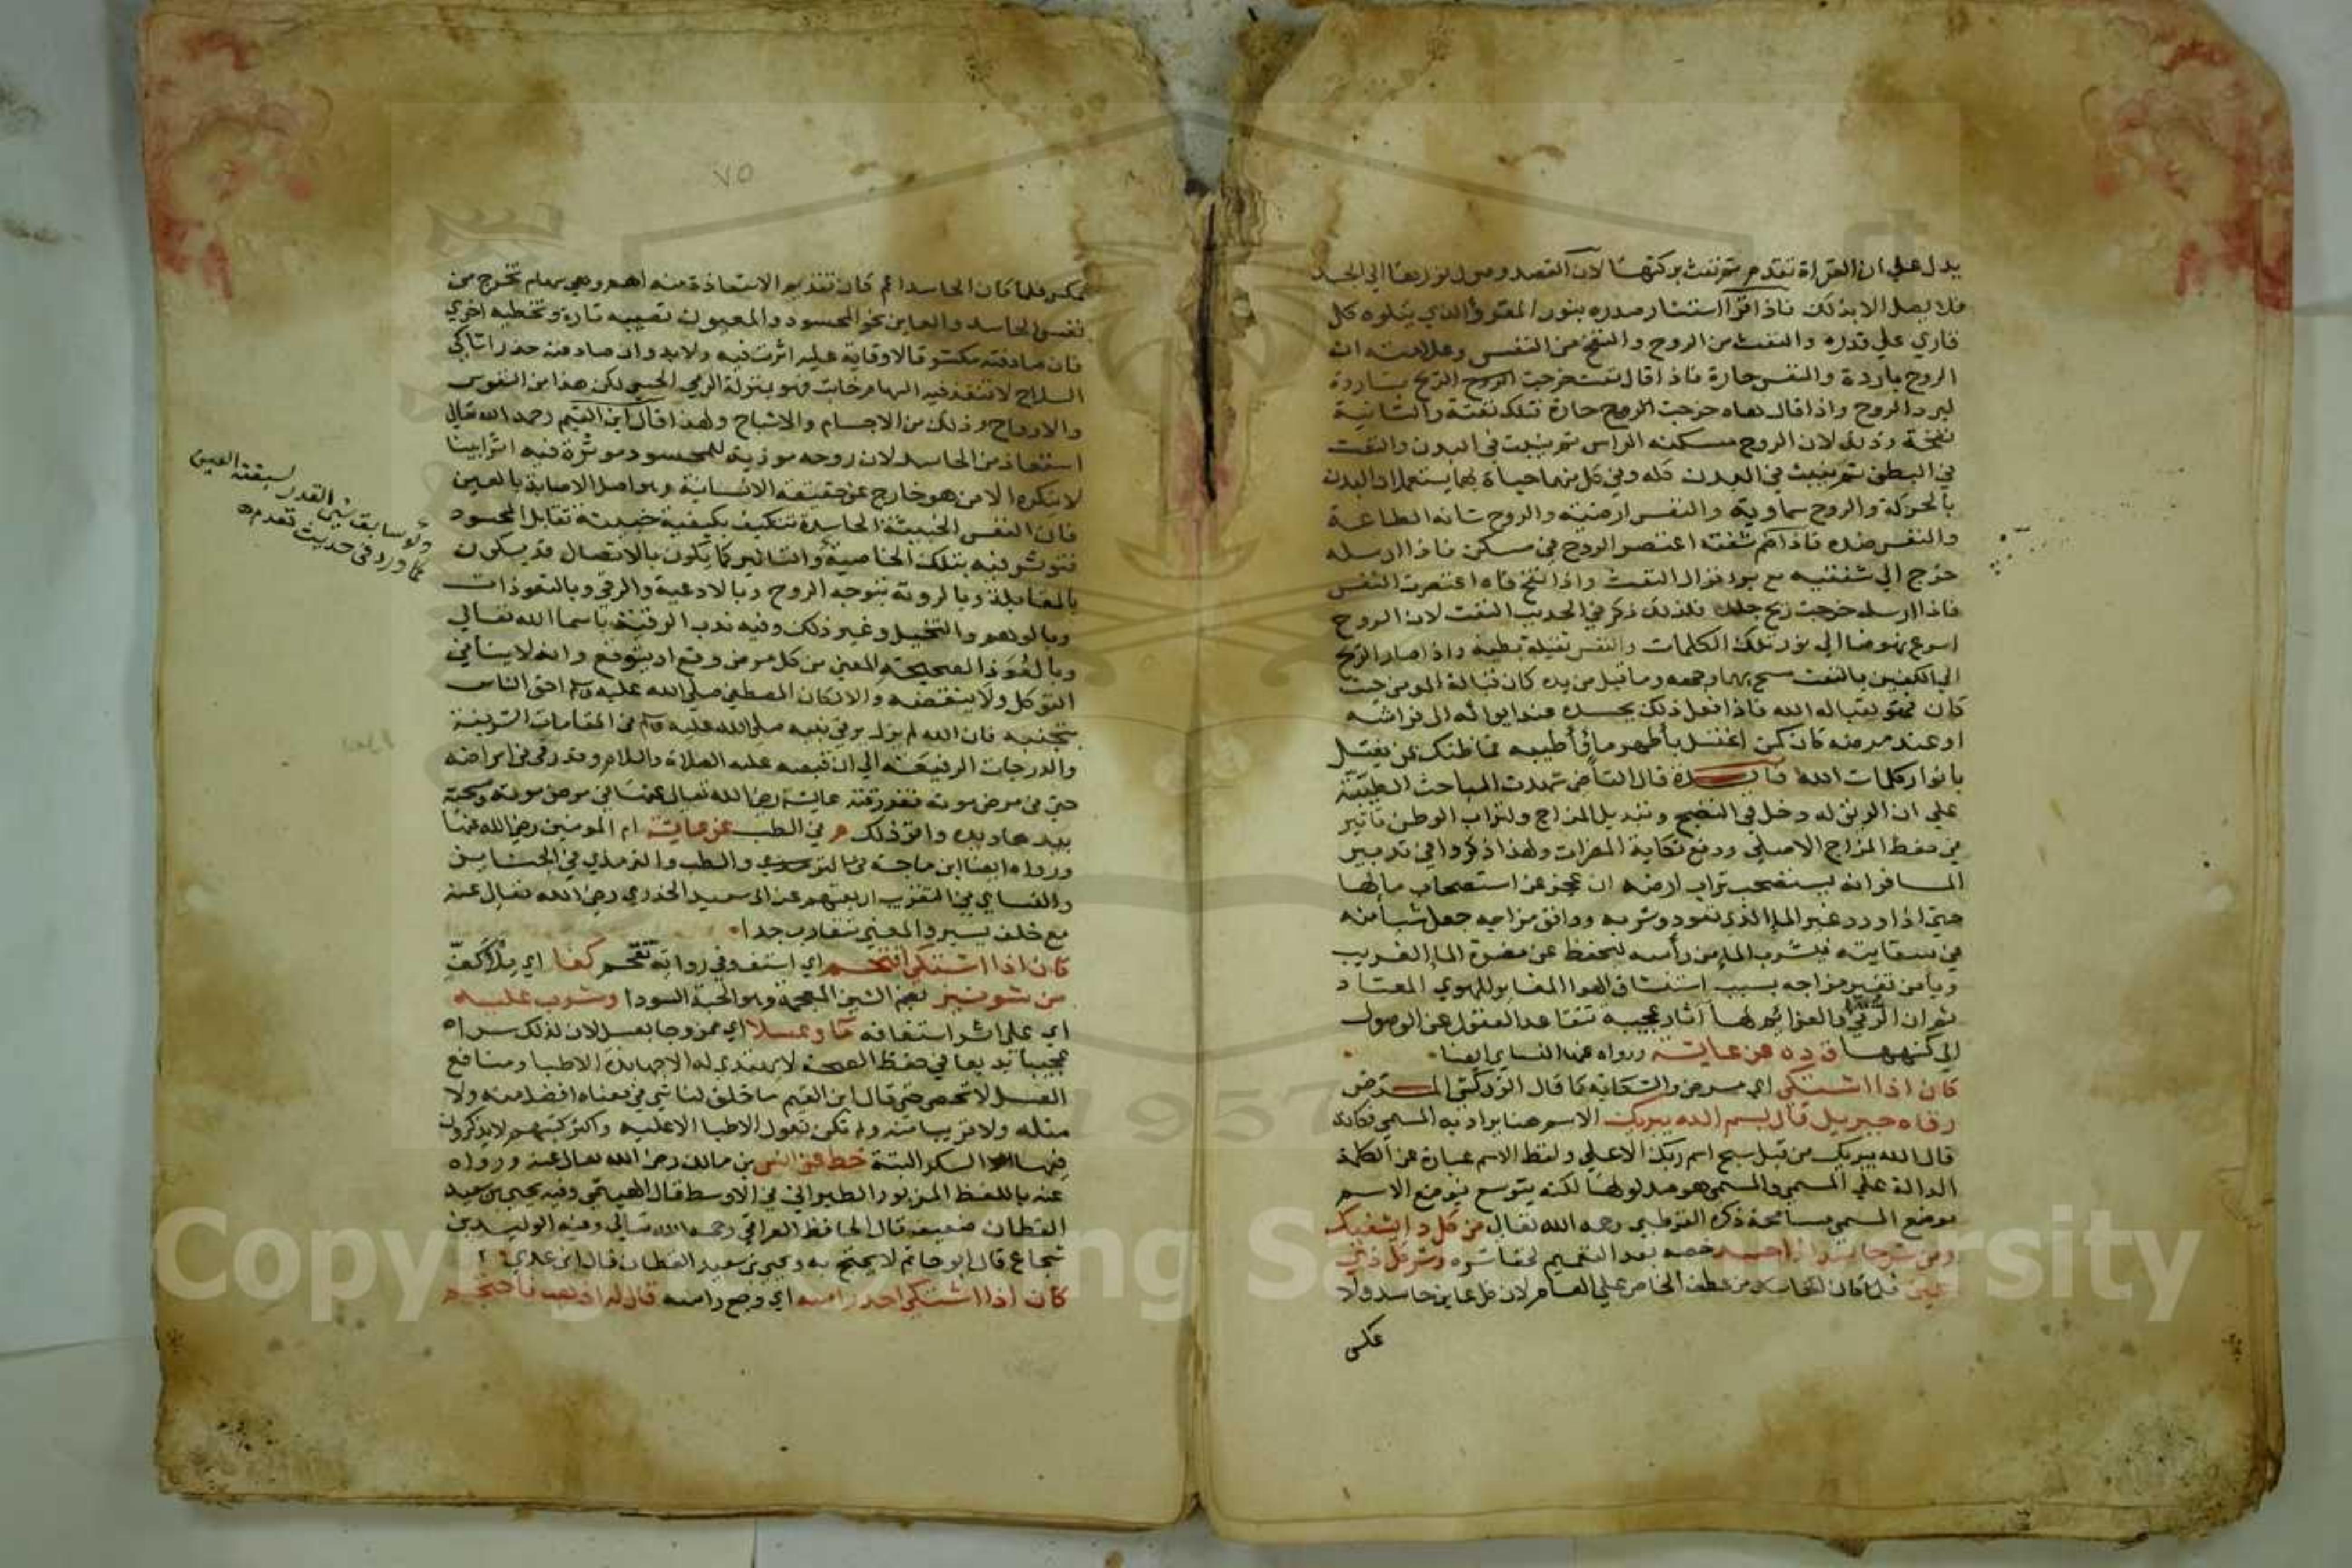 يدل علي ان القراة تقدم ثم نفث ببركتها لان القصد وصول نورها الي الجسد
فلا يصل الا بذلك فاذا قرأ استنار صدره بنور المقروء الذي يتلوه كل
قاري علي قدره والنفث من الروح والنفخ من النفس وعلامته ان
الروح باردة والنفس حارة فاذا قال نفث خرجت الريح باردة
لبرد الروح واذا قال هاه خرجت الريح حارة فتلك نفثة والثانية
نفخة وذلك لان الروح مسكنه الراس ثم ينبث في البدن والنفس
في البطن ثم ينبث في البدن كله وفي كل منهما حياة بهما يستعمل البدن
بالحركة والروح سماوية والنفس ارضية والروح شانه الطاعة
والنفس ضده فاذا ضم شفته اعتصر الروح في مسكنه فاذا ارسله
خرج الي شفتيه مع برد فذاك النفث واذا فتح فاه اعتصرت النفس
فاذا ارسله خرجت ريح جلدة فلذلك ذكر في الحديث النفث لان الروح
اسرع نهوضا الي نور تلك الكلمات والنفس ثقيلة بطيه واذا صار الريح
الي الكفين بالنفث مسح بهما وجهه وما اقبل من بدنه كان قبالة المومن حيث
كان فهو قبالة الله فاذا فعل ذلك بجسده عند ايوائه الي فراشه
او عند مرضه كان كمن اغتسل بأطهر ماء وأطيبه فما ظنك بمن يغتسل
بانوار كلمات الله فائدة قال القاضي شهدت المباحث الطبية
علي ان الريق له دخل في النضج وتبديل المزاج ولتراب الوطن تاثير
في حفظ المزاج الاصلي ودفع نكاية المضرات ولهذا ذكروا في تدبير
المسافر انه يستصحب تراب ارضه ان عجز عن استصحاب مائها
حتي اذا ورد غير الماء الذي تعود شربه ووافق مزاجه جعل شيأ منه
في سقايته فيشرب الماء من رأسه ليحفظ عن مضرة الماء الغريب
ويأمن تغير مزاجه بسبب استنشاق الهواء المغاير للهوي المعتاد
ثم ان الرقي والعزائم لها آثار عجيبة تتقاعد العقول عن الوصول
الي كنهها ق د ه عن عايشة ورواه عنها النساي ايضا
كان اذا اشتكي اي مرض والشكاية كما قال الزركشي المرض
رقاه جبريل قال بسم الله يبريك الاسم هنا يراد به المسمي فكانه
قال الله يبريك من قبيل سبح اسم ربك الاعلي ولفظ الاسم عبارة عن الكلمة
الدالة علي المسمي والمسمي هو مدلولها لكنه يتوسع فيوضع الاسم
موضع المسمي مسامحة ذكره القرطبي رحمه الله تعالي من كل داء يشفيك
ومن شر حاسد اذا حسد خصه بعد التعميم لخفا شره وشر كل ذي
عين فلما كان الحاسد من عطف الخاص علي العام لان كل عاين حاسد ولا
عكس
٧٥
عكس فلما كان الحاسد اعم كان تقديم الاستعاذة منه اهم وهي سهام تخرج من
نفس الحاسد والعاين نحو المحسود والمعيون تصيبه تارة وتخطيه اخري
فان صادفته مكشوفا لا وقاية عليه اثرت فيه ولا بد وان صادفته حذرا شاكي
السلاح لا منفذ فيه للسهام خابت فهو بمنزلة الرمي الحسي لكن هذا من النفوس
والارواح وذلك من الاجسام والاشباح ولهذا قال ابن القيم رحمه الله تعالي
استعاذ من الحاسد لان روحه موذية للمحسود موثرة فيه اثرا بينا
لا ينكره الا من هو خارج عن حقيقة الانسانية وهو اصل الاصابة بالعين
فان النفس الخبيثة الحاسدة تتكيف بكيفية خبيثة تقابل المحسود
فتوثر فيه بتلك الخاصية والتاثير كما يكون بالاتصال قد يكون
بالمقابلة وبالروية بتوجه الروح وبالادعية والرقي وبالتعوذات
وبالوهم والتخيل وغير ذلك وفيه ندب الرقية باسما الله تعالي
وبالعُوَذ الصحيحة المعني من كل مرض وقع او يتوقع وانه لا ينافي
التوكل ولا ينقضه والا لكان المصطفي صلي الله عليه وسلم احق الناس
بتجنبه فان الله لم يزل يرقي نبيه صلي الله عليه وسلم في المقامات الشريفة
والدرجات الرفيعة الي ان قبضه عليه الصلاة والسلام وقد رقي في امراضه
حتي في مرض موته فقد رقته عايشة رضي الله تعالي عنها في مرض موته ومسحته
بيدها ويده واقر ذلك م في الطب عن عايشة ام المومنين رضي الله عنها
ورواه ايضا ابن ماجة في الطب والترمذي في الجنايز
والنساي في اربعتهم عن ابي سعيد الخدري رضي الله تعالي عنه
مع خلف يسير والمعني متقارب جدا
كان اذا اشتكي اقتحم اي استف وفي رواية تقحم كفا اي ملأ كف
من شونيز بضم الشين المعجمة وهو الحبة السودا وشرب عليه
اي علي اثر استفافه مآ وعسلا اي ممزوجا بعسل لان لذلك سرا
عجيبا بديعا في حفظ الصحة لا يهتدي له الا جهابذة الاطبا ومنافع
العسل لا تحصي حتي قال ابن القيم ما خلق لنا شي في معناه افضل منه ولا
مثله ولا قريبا منه ولم تكن تعول الاطبا الا عليه واكثر كتبهم لا يذكرون
فيها السكر البتة خط عن انس بن مالك رضي الله تعالي عنه ورواه
عنه باللفظ المزبور الطبراني في الاوسط قال الهيتمي وفيه يحيي بن سعيد
القطان ضعيف قال الحافظ العراقي رحمه الله تعالي وفيه الوليد بن
شجاع قال ابو حاتم لا يحتج به ويحيي بن سعيد القطان قال ابن عدي
كان اذا اشتكي احد راسه اي وجع راسه قال له اذهب فاحتجم
ولو سابق شي القدر لسبقته العين
كما ورد في حديث تقدم
Copyright © King Saud University
1957